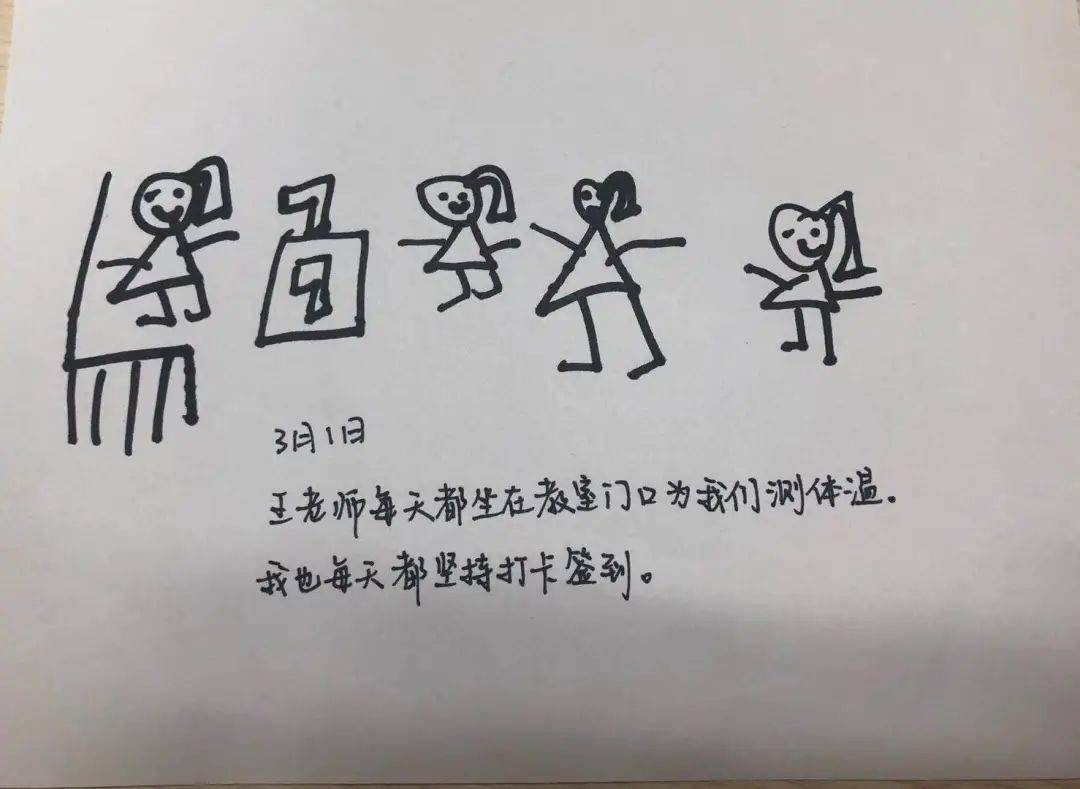 3月1日
王老师每天都坐在教室门口为我们测体温。
我也每天都坚持打卡签到。